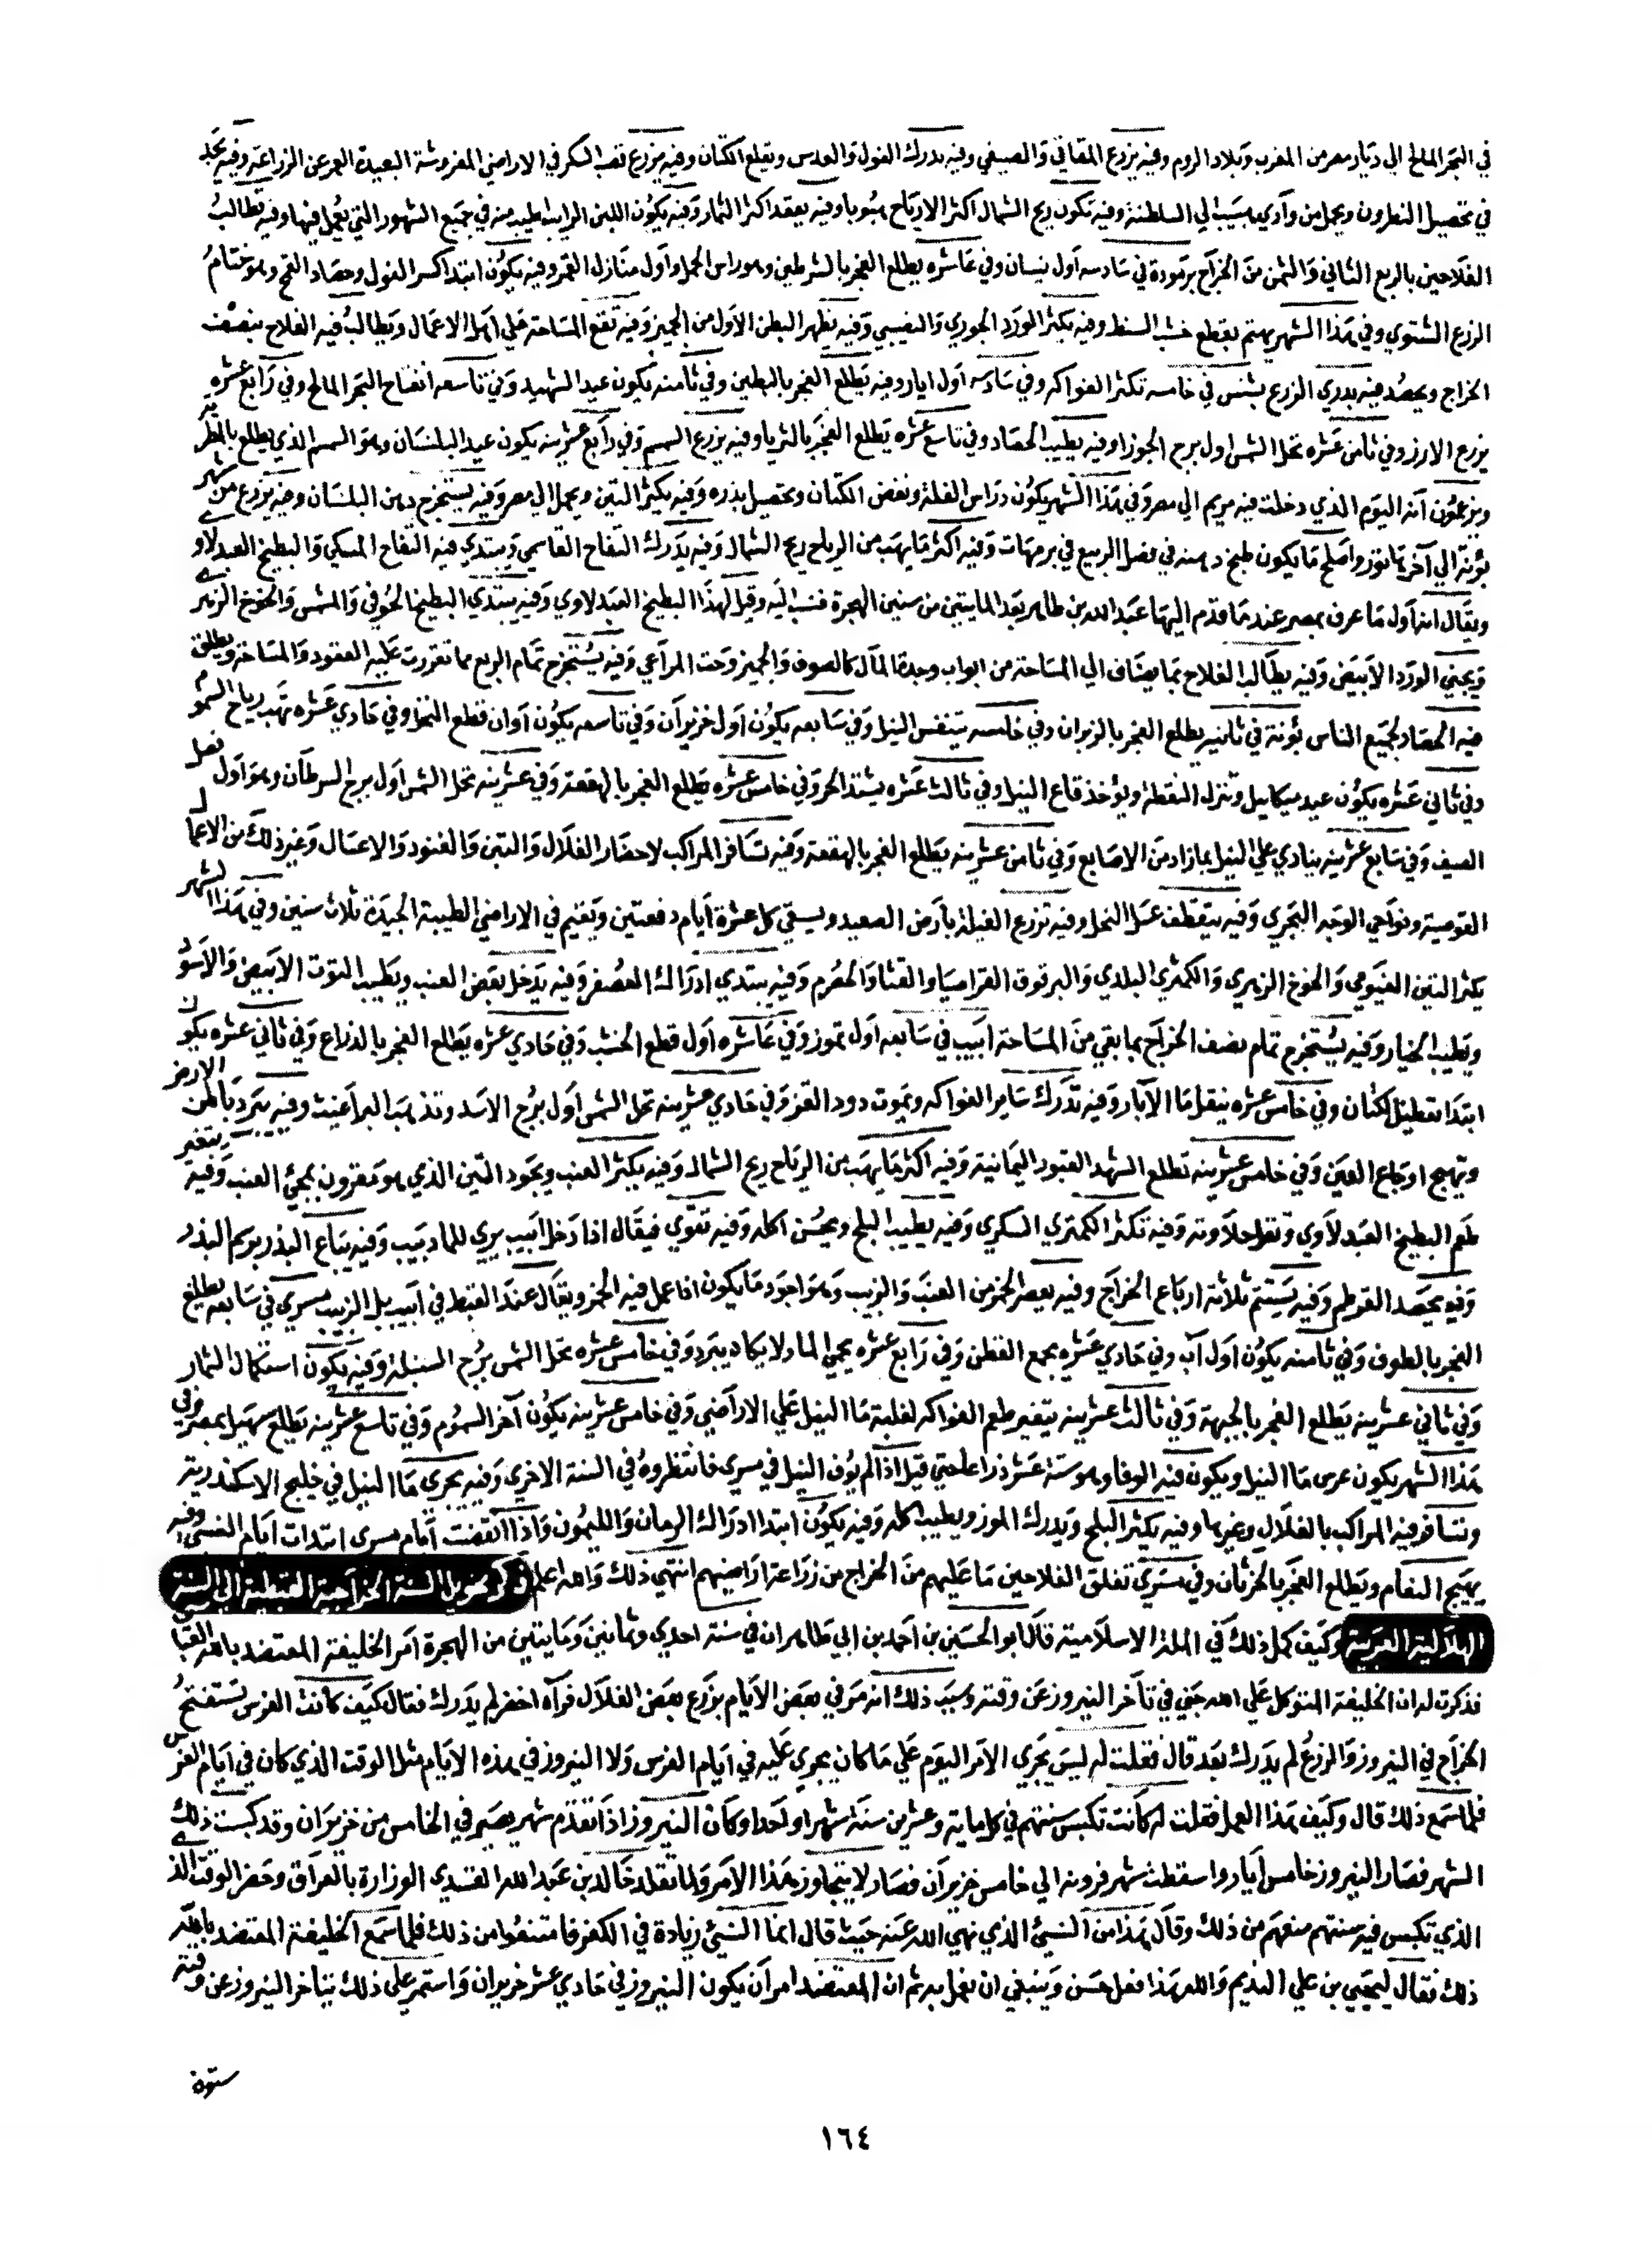 في البحر المالح الي ديار مصر من المغرب وبلاد الروم وفيه يزرع المقاثي والصيفي وفيه يدرك الفول والعدس ويقلع الكتان وفيه يزرع قصب السكر في الاراضي المفروشة البعيدة العهد عن الزراعة وفيه يجد
في تحصيل النطرون ويحمل من وادي هبيب الي السلطنة وفيه تكون ريح الشمال اكثر الارياح هبوبا وفيه يعقد اكثر الثمار وفيه يكون اللبن الرايب اطيب منه في جميع الشهور التي يعمل فيها وفيه يطالب
الفلاحين بالربع الثاني والثمن من الخراج برمودة في سادسه اول نيسان وفي عاشره يطلع الفجر بالشرطين وهو راس الحمل واول منازل القمر وفيه يكون ابتدا كسر الفول وحصاد القمح وهو ختام
الزرع الشتوي وفي هذا الشهر يهتم بقطع خشب السنط وفيه يكثر الورد الجوري والبنفسجي وفيه يظهر البطن الاول من الجميز وفيه تقع المساحة علي اهل الاعمال ويطالب فيه الفلاح بنصف
الخراج ويحصد فيه بدري الزرع بشنس في خامسه تكثر الفواكه وفي سادسه اول ايار وفيه يطلع الفجر بالبطين وفي ثامنه يكون عيد الشهيد وفي تاسعه انفتاح البحر المالح وفي رابع عشره
يزرع الارز وفي ثامن عشره تحل الشمس اول برج الجوزا وفيه يطيب الحصاد وفي تاسع عشره يطلع الفجر بالثريا وفيه يزرع السمسم وفي رابع عشرينه يكون عيد البلسان
ويزعمون انه اليوم الذي دخلت فيه مريم الي مصر وفي هذا الشهر يكون دراس الغلة ونفض الكتان وتحصيل بذره وفيه يكثر التبن ويحمل الي مصر وفيه يستخرج دهن البلسان وفيه يزرع من شهر
بؤنة الي آخر هاتور واصلح ما يكون طبخ دهنه في فصل الربيع في برمهات وفيه اكثر ما يهب من الرياح ريح الشمال وفيه يدرك التفاح القاسمي ويبتدي فيه التفاح المسكي والبطيخ العبدلاوي
ويقال انه اول ما عرف بمصر عند ما قدم اليها عبد الله بن طاهر بعد المايتين من سنين الهجرة فنسب اليه وقيل لهذا البطيخ العبدلاوي وفيه يبتدي البطيخ الحوفي والمشمس والخوخ الزهري
ويجني الورد الابيض وفيه يطالب الفلاح بما يضاف الي المساحة من ابواب وجدة المال كالصوف والجميز وحت المراعي وفيه يستخرج تمام الربع مما تقررت عليه العقود والمساحة ويطلق
فيه الحصاد لجميع الناس بؤنة في ثانيه يطلع الفجر بالدبران وفي خامسه يتنفس النيل وفي سابعه يكون اول حزيران وفي تاسعه يكون اوان قطع النخل وفي حادي عشره تهب رياح السموم
وفي ثاني عشره يكون عيد ميكاييل وتنزل النقطة ويؤخذ قاع النيل وفي ثالث عشره يشتد الحر وفي خامس عشره يطلع الفجر بالهقعة وفي عشرينه تحل الشمس اول برج السرطان وهو اول فصل
الصيف وفي سابع عشرينه ينادي علي النيل بما زاد من الاصابع وفي ثامن عشرينه يطلع الفجر بالهقعة وفيه تسافر المراكب لاحضار الغلال والتبن والقنود والاعسال وغير ذلك من الاعمال
القوصية ونواحي الوجه البحري وفيه يقطف عسل النحل وفيه تزرع النيلة بارض الصعيد ويستقي كل عشرة ايام دفعتين وتقيم في الاراضي الطيبة الجيدة ثلاث سنين وفي هذا الشهر
يكثر التين الفيومي والخوخ الزهري والكمثري البلدي والبرقوق القراصيا والقثا والحصرم وفيه يبتدي ادراك العصفر وفيه يدخل بعض العنب ويطيب التوت الابيض والاسود
ويطيب الخيار وفيه يستخرج تمام نصف الخراج بما بقي من المساحة ابيب في سابعه اول تموز وفي عاشره اول قطع الخشب وفي حادي عشره يطلع الفجر بالذراع وفي ثاني عشره يكون
ابتدا تعطين الكتان وفي خامس عشره يقل ما الآبار وفيه تدرك ساير الفواكه ويموت دود القز وفي حادي عشرينه تحل الشمس اول برج الاسد وتذهب البراغيث وفيه يبرد باطن الارض
وتهيج اوجاع العين وفي خامس عشرينه تطلع الشعري العبور اليمانية وفيه اكثر ما يهب من الرياح ريح الشمال وفيه يكثر العنب ويجود التين الذي هو مقرون بمجي العنب وفيه يتغير
طعم البطيخ العبدلاوي وتقل حلاوته وفيه تكثر الكمثري السكري وفيه يطيب البلح ويحسن اكله وفيه تقوي فيقال اذا دخل ابيب يري للما دبيب وفيه يباع البذر برسم البذر
وفيه يحصد القرطم وفيه يستتم ثلاثة ارباع الخراج وفيه يعصر الخمر من العنب والزبيب وهو اجود ما يكون اذا عمل فيه الخمر ويقال عند القبط في ابيب بل الزبيب مسري في سابعه يطلع
الفجر بالطرف وفي ثامنه يكون اول آب وفي حادي عشره يجمع القطن وفي رابع عشره يحمي الما ولا يكاد يبرد وفي خامس عشره تحل الشمس برج السنبلة وفيه يكون استكمال الثمار
وفي ثاني عشرينه يطلع الفجر بالجبهة وفي ثالث عشرينه يتغير طعم الفواكه لغلبة ما النيل علي الاراضي وفي خامس عشرينه يكون آخر السموم وفي تاسع عشرينه يطلع سهيل بمصر وفي
هذا الشهر يكون عرس ما النيل ويكون فيه الوفا وهو ستة عشر ذراعا حتي قيل اذا لم يوف النيل في مسري فانتظروه في السنة الاخري وفيه يجري ما النيل في خليج الاسكندرية
وتسافر فيه المراكب بالغلال وغيرها وفيه يكثر البلح ويدرك الموز ويطيب اكله وفيه يكون ابتدا ادراك الرمان والليمون واذا انقضت ايام مسري ابتدات ايام النسي وفيه
يهيج النعام ويطلع الفجر بالخرثان وفي مسري تغلق الفلاحين ما عليهم من الخراج من زراعة اراضيهم انتهي ذلك والله اعلم ذكر تحويل السنة الخراجية القبطية الي السنة
الهلالية العربية وكيف كمل ذلك في الملة الاسلامية قال ابو الحسين بن احمد بن ابي طاهر ان في سنة احدي وثمانين ومايتين من الهجرة امر الخليفة المعتضد بالله
فذكرت له ان الخليفة المتوكل علي الله في تاخر النيروز عن وقته وسبب ذلك انه مر في بعض الايام بزرع بعض الغلال فرآه اخضر لم يدرك فقال كيف كانت الفرس تستفتح
الخراج في النيروز والزرع لم يدرك بعد قال فقلت له ليس يجري الامر اليوم علي ما كان يجري عليه في ايام الفرس ولا النيروز في هذه الايام مثل الوقت الذي كان في ايام الفرس
فلما سمع ذلك قال وكيف هذا العمل فقلت له كانت تكبس سنتهم في كل ماية وعشرين سنة شهرا واحدا وكان النيروز اذا تقدم شهر يصير في الخامس من حزيران وقد كبست ذلك
الشهر فصار النيروز خامس ايار واسقطت شهر فرونه الي خامس حزيران فصار لا يتجاوز هذا الامر ولما تقلد خالد بن عبد الله القسري الوزارة بالعراق وحضر الوقت
الذي تكبس فيه سنتهم منعهم من ذلك وقال هذا من النسئ الذي نهي الله عنه حيث قال انما النسئ زيادة في الكفر فامتنعوا من ذلك فلما سمع الخليفة المعتضد بالله
ذلك فقال ليحيي بن علي النديم والله هذا فعل حسن وينبغي ان نعمل به ثم ان المعتضد امر ان يكون النيروز في حادي عشر حزيران واستمر علي ذلك يتاخر النيروز عن وقته
١٦٤